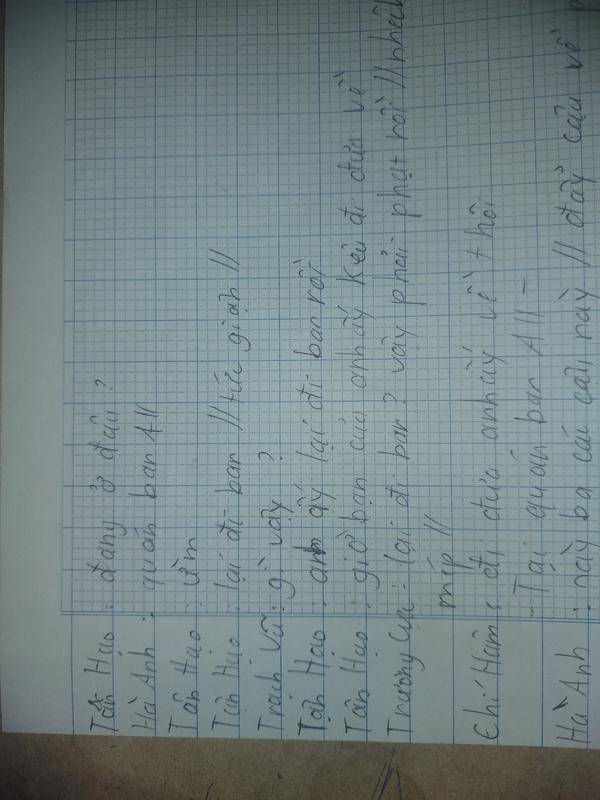 Tân Hạo : đang ở đâu ?
Hà Anh : quán bar A11
Tân Hạo : ừm
Tân Hạo : lại đi bar // tức giận //
Trạch Vũ : gì vậy ?
Tân Hạo : anh ấy lại đi bar rồi
Tân Hạo : giờ bạn của anh ấy kêu đi đưa về
Trương Cực : lại đi bar ? vậy phải phạt rồi // nhếch
mép //
Chí Hâm : đi đưa anh ấy về + hồi
- Tại quán bar A11 -
Hà Anh : này ba cái cậu này // đẩy cậu về